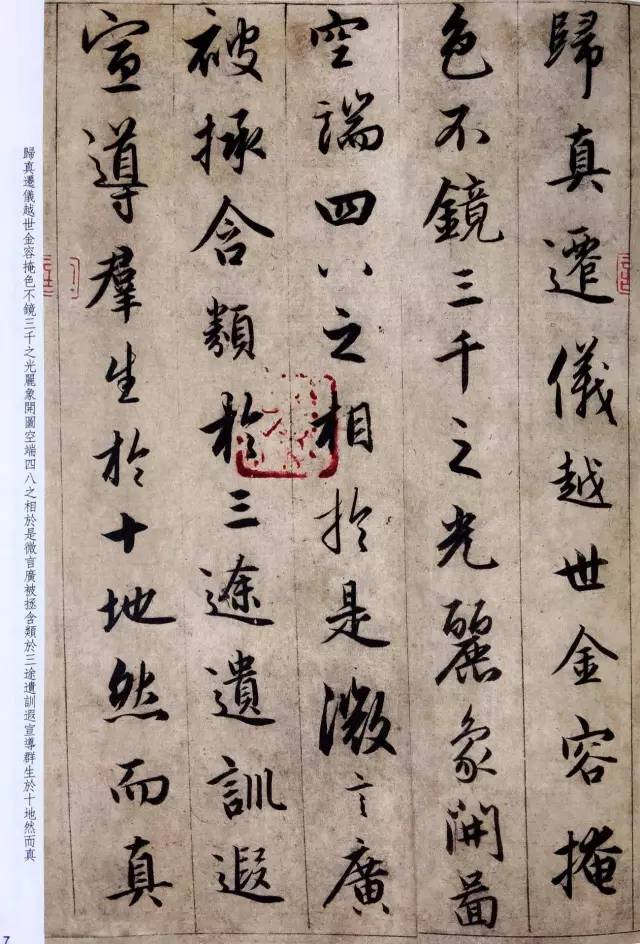 歸真遷儀越世金容掩
色不鏡三千之光麗象開圖
空端四八之相於是微言廣
被拯含類於三途遺訓遐
宣導羣生於十地然而真
歸真遷儀越世金容掩色不鏡三千之光麗象開圖空端四八之相於是微言廣被拯含類於三途遺訓遐宣導群生於十地然而真
7